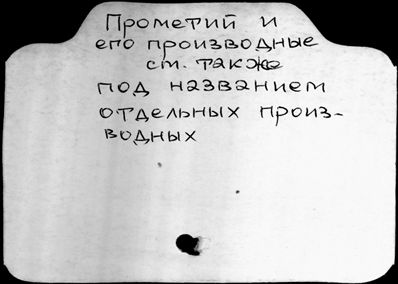 Прометий и
его производные
см. также
под названием
отдельных произ-
водных